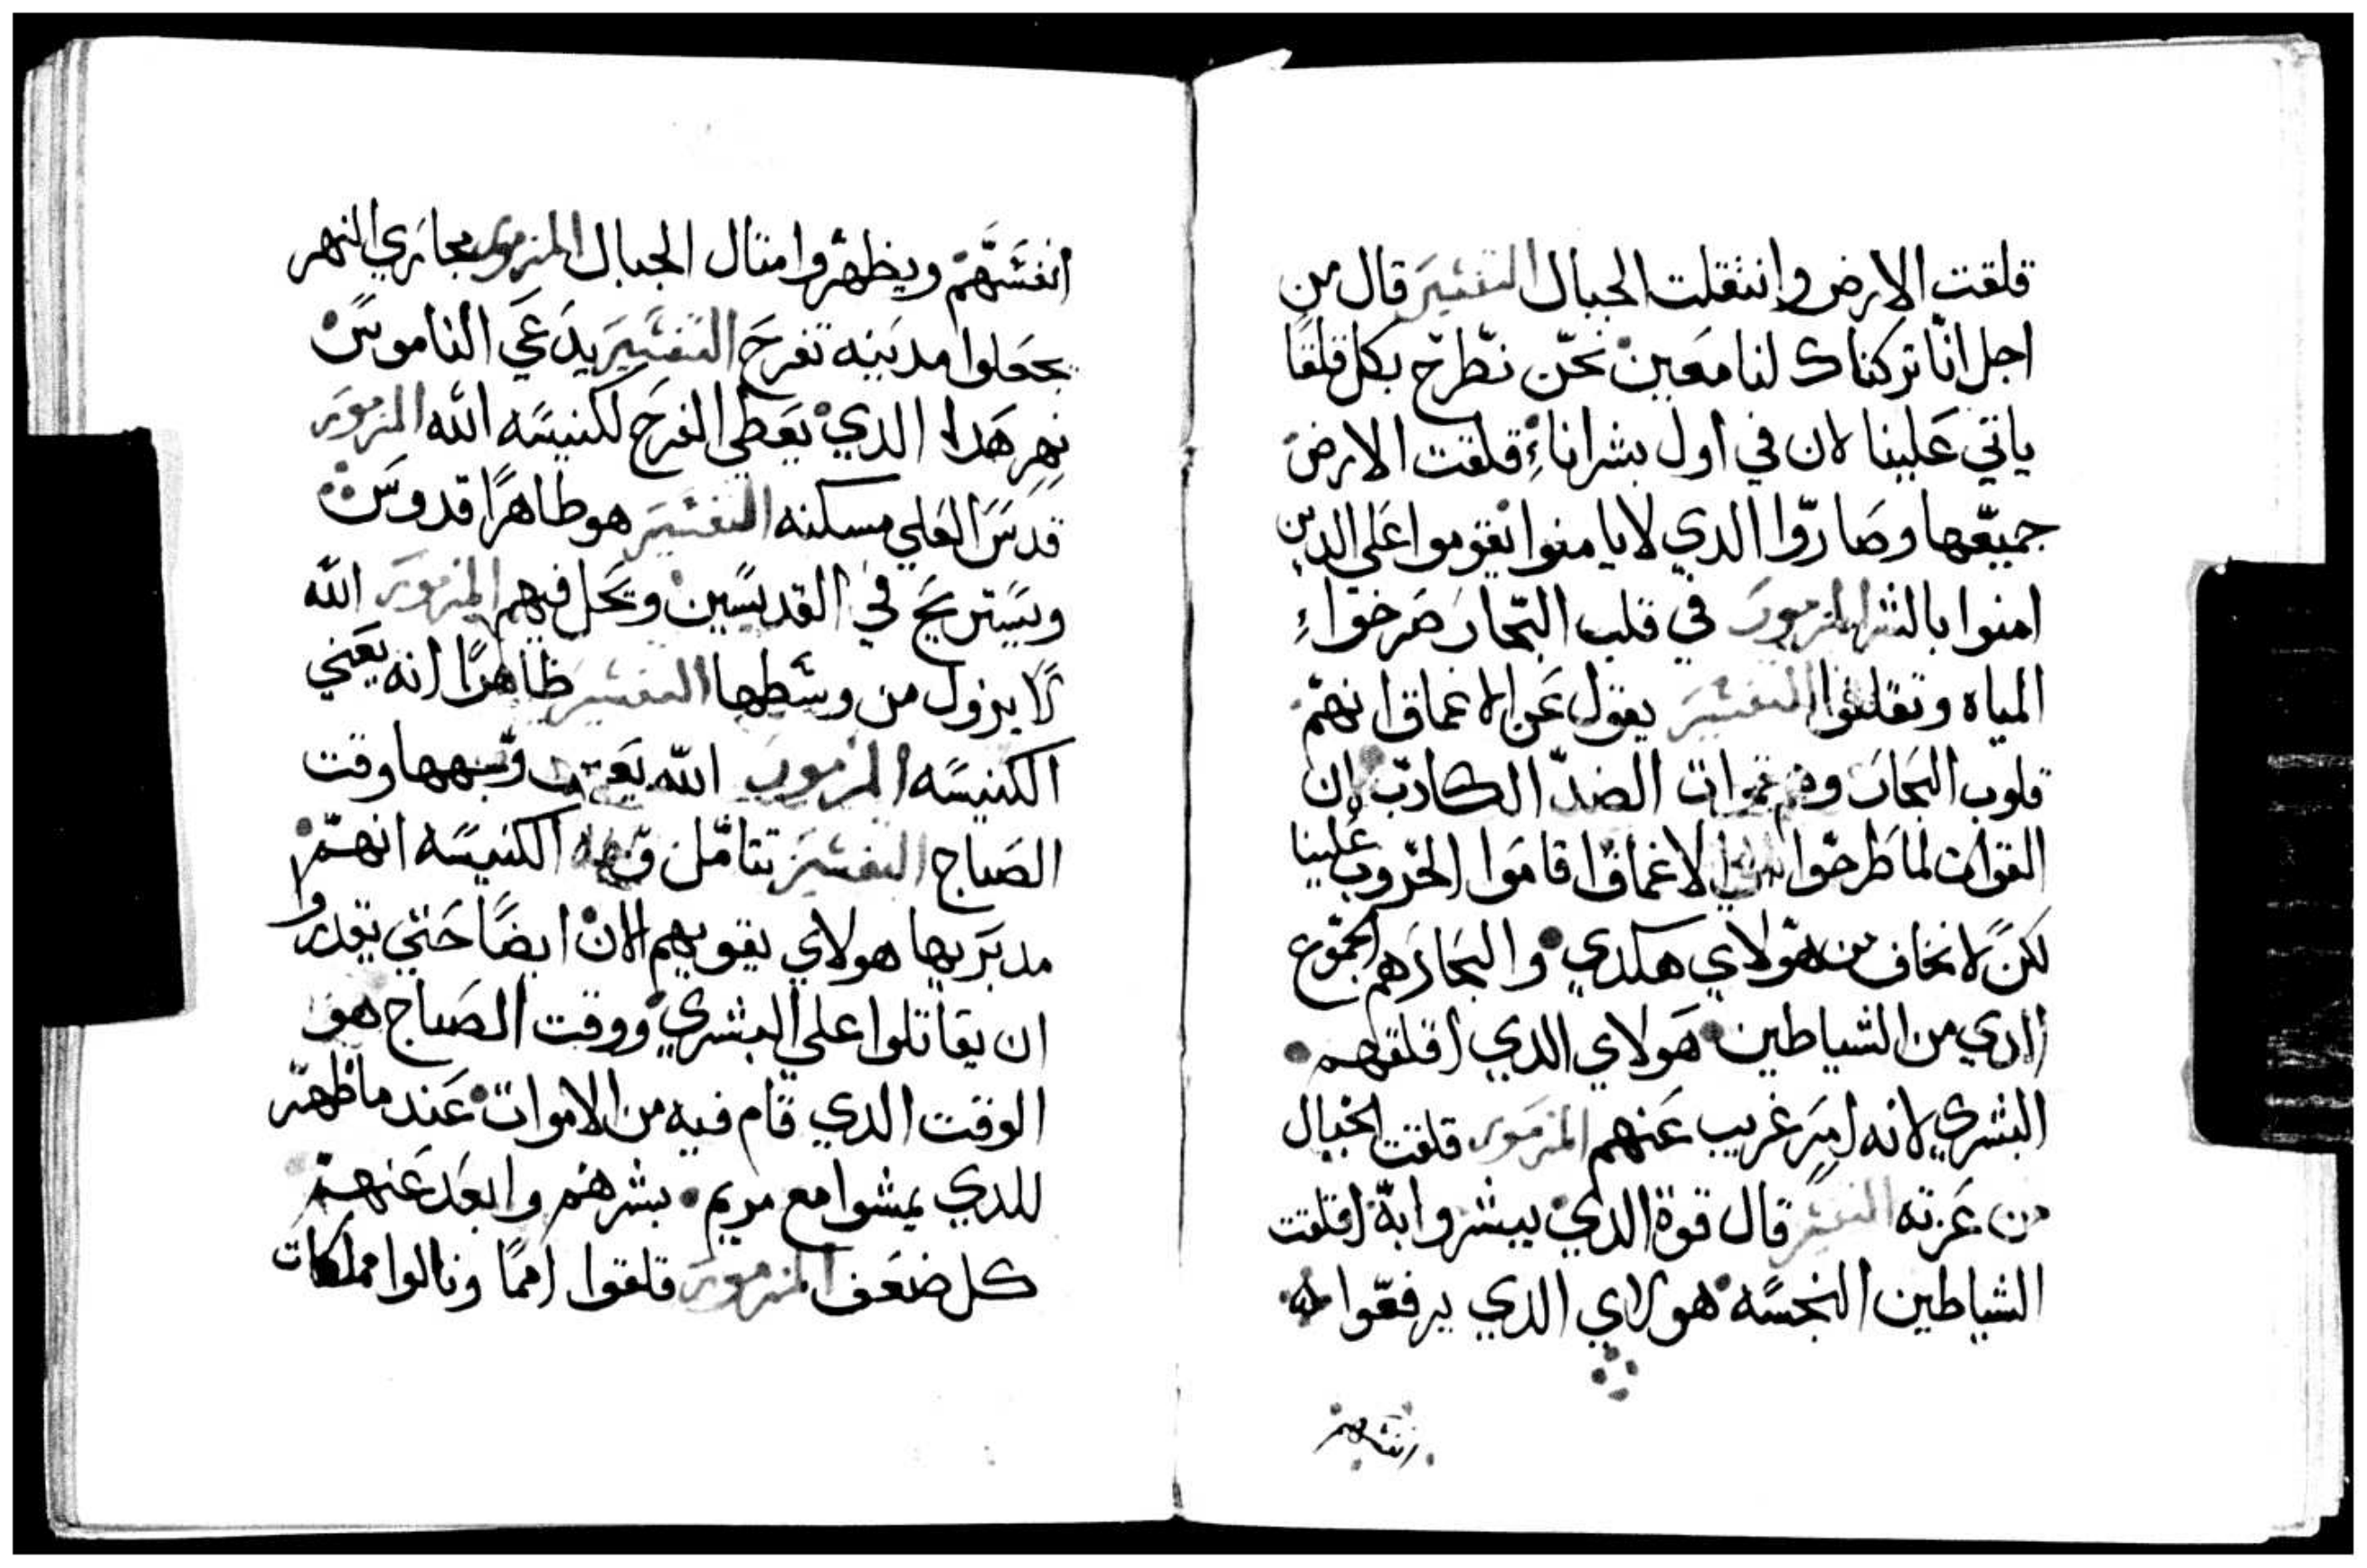 قلقت الارض وانتقلت الجبال التفسير قال من
اجل انا تركناك لنا معين نحن نطرح بكل قلقا
ياتي علينا لان في اول بشراناء قلقت الارض
جميعها وصاروا الدي لا يامنوا يقوموا على الدين
امنوا بالبشرا المزمور في قلب البحار صرخواء
المياه وتقلقوا التفسير يقول عن الاعماق انهم
قلوب البحار وهم قوات الضد الكادب ان
القوات لما طرحوا الاعماق اقاموا الحروب علينا
لكن لا نخاف من هولاي هكدي والبحار هم الجموع
الردي من الشياطين هولاي الدي اقلقهم
البشري لانه امر غريب عنهم المزمور قلقت الجبال
من عزته التفسير قال قوة الدي يبشروا به اقلقت
الشياطين النجسه هولاي الدي يرفعوا
انفسهم
انفسهم ويظهروا امتال الجبال المزمور مجاري النهر
يجعلوا مدينه تفرح التفسير يدعي الناموس
نهر هدا الدي يعطي الفرح لكنيسه الله المزمور
قدس العلي مسكنه التفسير هو طاهرا قدوس
ويستريح في القديسين ويحل فيهم المزمور الله
لا يزول من وسطها التفسير ظاهرا انه يعني
الكنيسه المزمور الله وجهها وقت
الصباح التفسير تتامل وجه الكنيسه انهم
مدبريها هولاي يقويهم الان ايضا حتي يقدروا
ان يقاتلوا على البشري ووقت الصباح هو
الوقت الدي قام فيه من الاموات عند ما ظهر
للدي يمشوا مع مريم بشرهم وابعد عنهم
كل ضعف المزمور قلقوا امما ومالوا مملكات